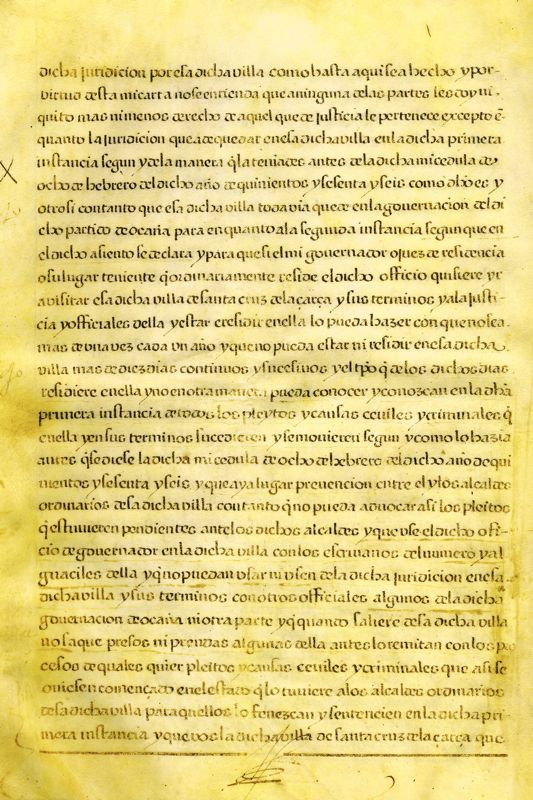 dicha juridicion por esa dicha villa como hasta aqui se a hecho y por
virtud desta mi carta no se entienda que a ninguna de las partes les doy ni
quito mas ni menos derecho de aquel que de justicia le pertenece excepto ē
quanto la juridicion que a de quedar en esa dicha villa en la dicha primera
instancia segun y de la manera q̄ la teniades antes de la dicha mi cedula de
ocho de hebrero del dicho año de quinientos y sesenta y seis como dho es y
otrosi con tanto que esa dicha villa todavia quede en la governacion del di
cho partido de ocaña para en quanto a la segunda instancia segun que en
el dicho asiento se declara y para que si el mi governador o juez de residencia
o su lugar teniente q̄ ordinariamente reside el dicho officio quisiere yr
a visitar esa dicha villa de santa cruz de la çarça y sus terminos y a la justi-
cia y officiales della y estar e residir en ella lo pueda hazer con que no sea
mas de una vez cada un año y que no pueda estar ni residir en esa dicha
villa mas de diez dias continuos y sucesivos y el tp̄o q̄ de los dichos dias
residiere en ella y no en otra manera pueda conocer y conozcan en la dha
primera instancia de todos los pleytos y causas ceviles y criminales q̄
en ella y en sus terminos sucedieren y se movieren segun y como lo hazia
antes q̄ se diese la dicha mi cedula de ocho de hebrero del dicho año de qui
nientos y sesenta y seis y que aya lugar prevencion entre el y los alcaldes
ordinarios desa dicha villa con tanto q̄ no pueda advocar asi los pleitos
q̄ estuvieren pendientes ante los dichos alcaldes y que use el dicho offi-
cio de governador en la dicha villa con los escrivanos del numero y al
guaciles della y q̄ no puedan usar ni usen de la dicha juridicion en esa
dicha villa y sus terminos con otros officiales algunos de la dicha
governacion de ocaña ni otra parte y q̄ quando saliere desa dicha villa
no saque presos ni prendas algunas della antes lo remitan con los pro
cesos de quales quier pleitos y causas ceviles y criminales que asi se
oviesen començado en el estado q̄ lo tuviere a los alcaldes ordinarios
desa dicha villa para quellos lo fenezcan y sentencien en la dicha pri-
mera instancia y que vos la dicha villa de santa cruz de la çarça que